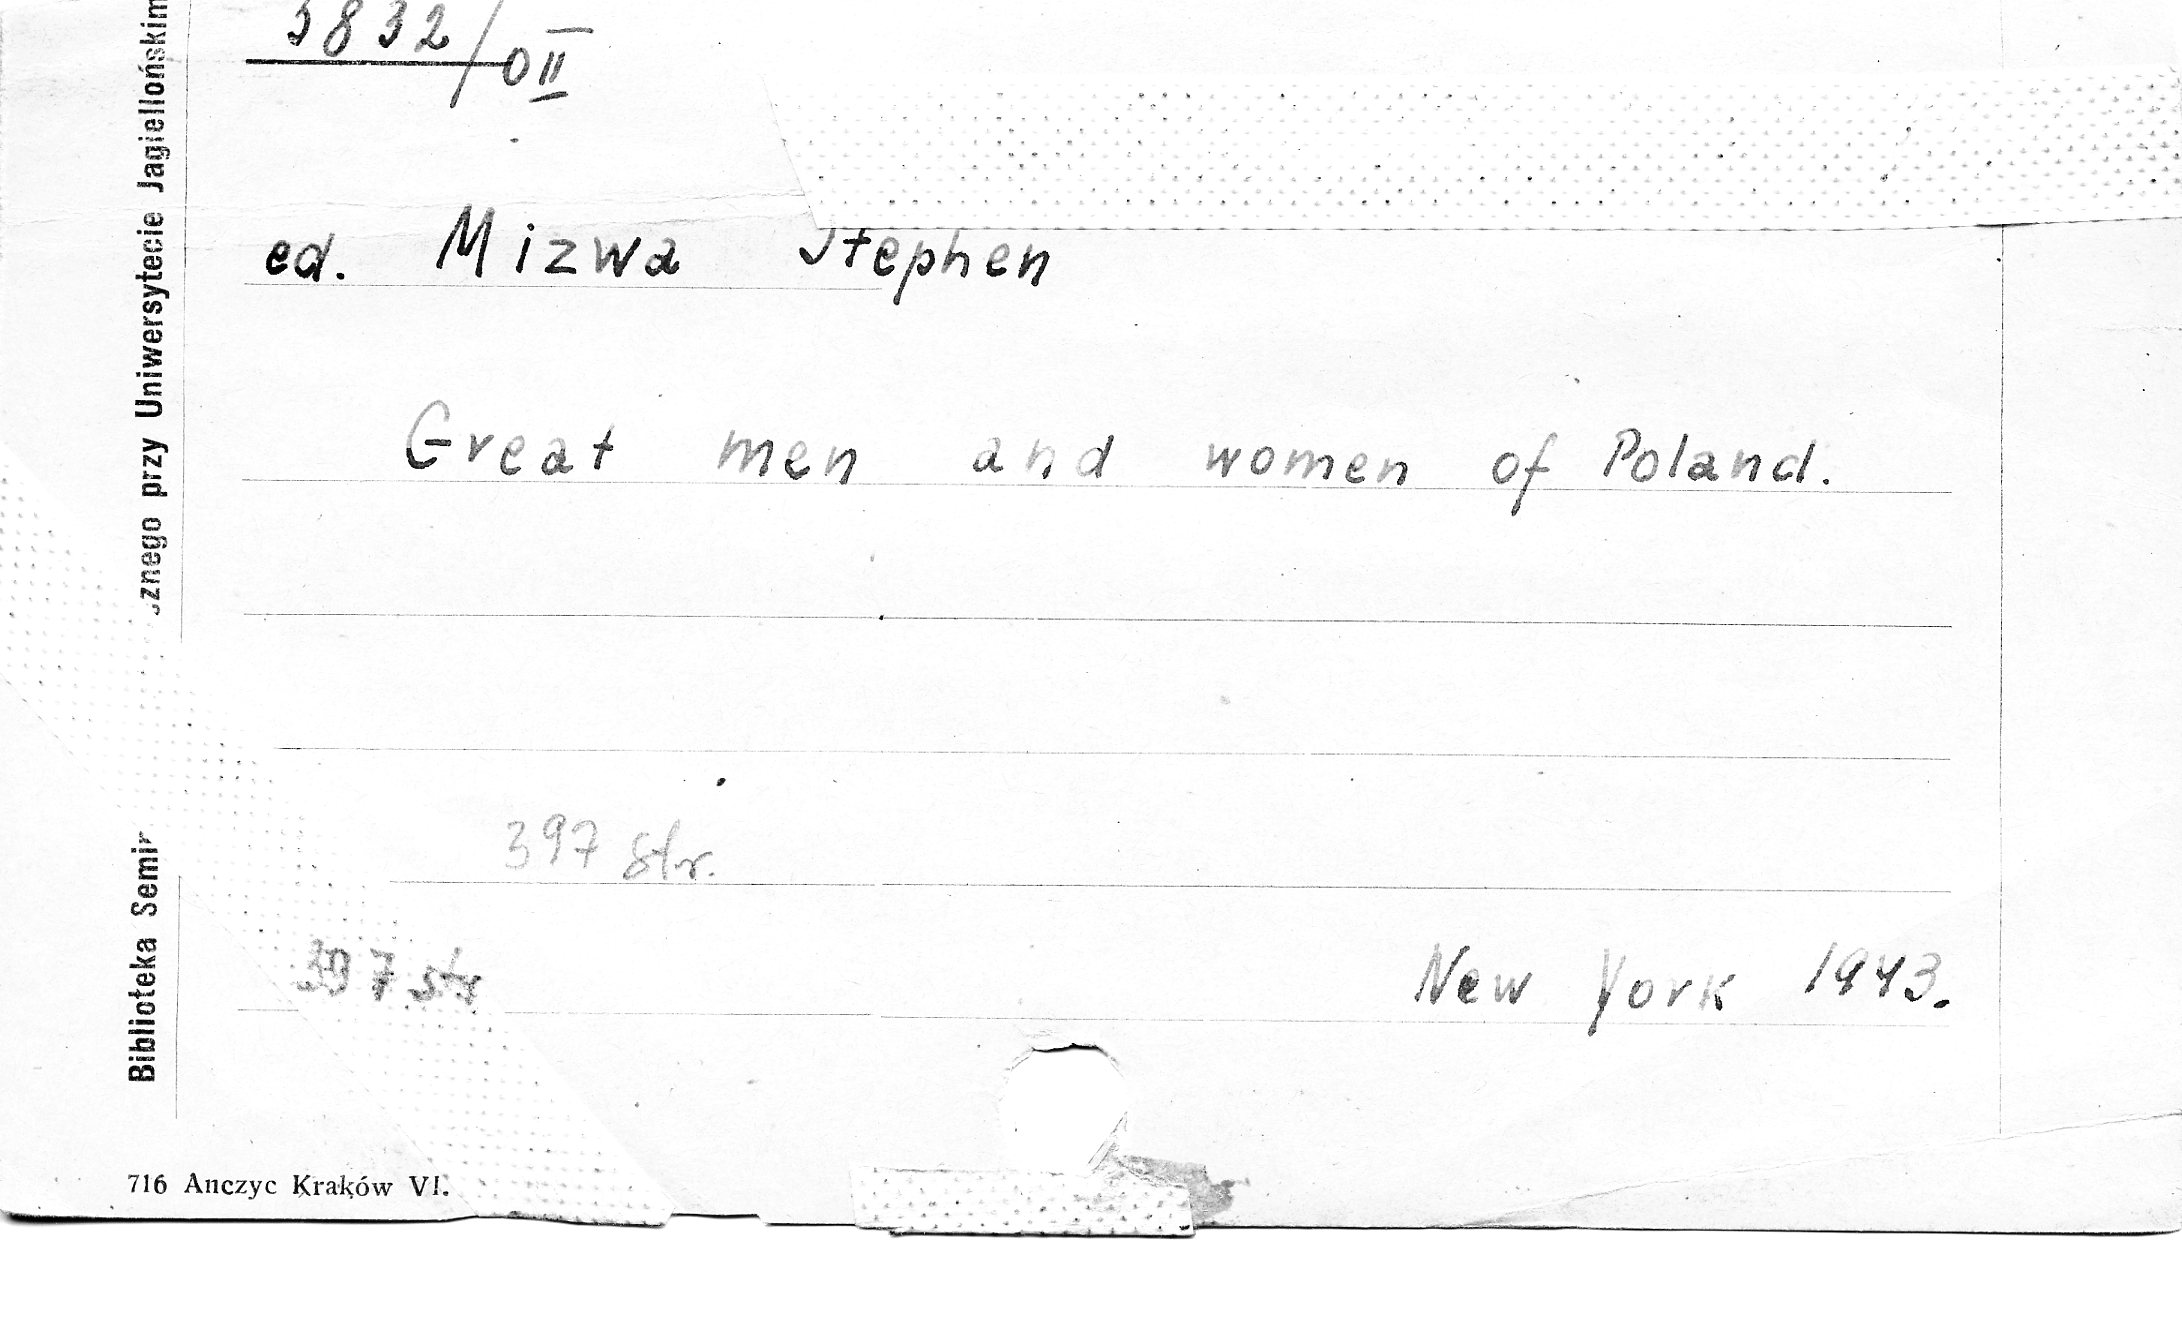 3832/OII
ed. Mizwa Stephen
Great men and women of Poland.
397 str.
397 str
New York 1943.
Biblioteka Semin
cznego przy Uniwersytecie Jagiellońskim
716 Anczyc Kraków VI.